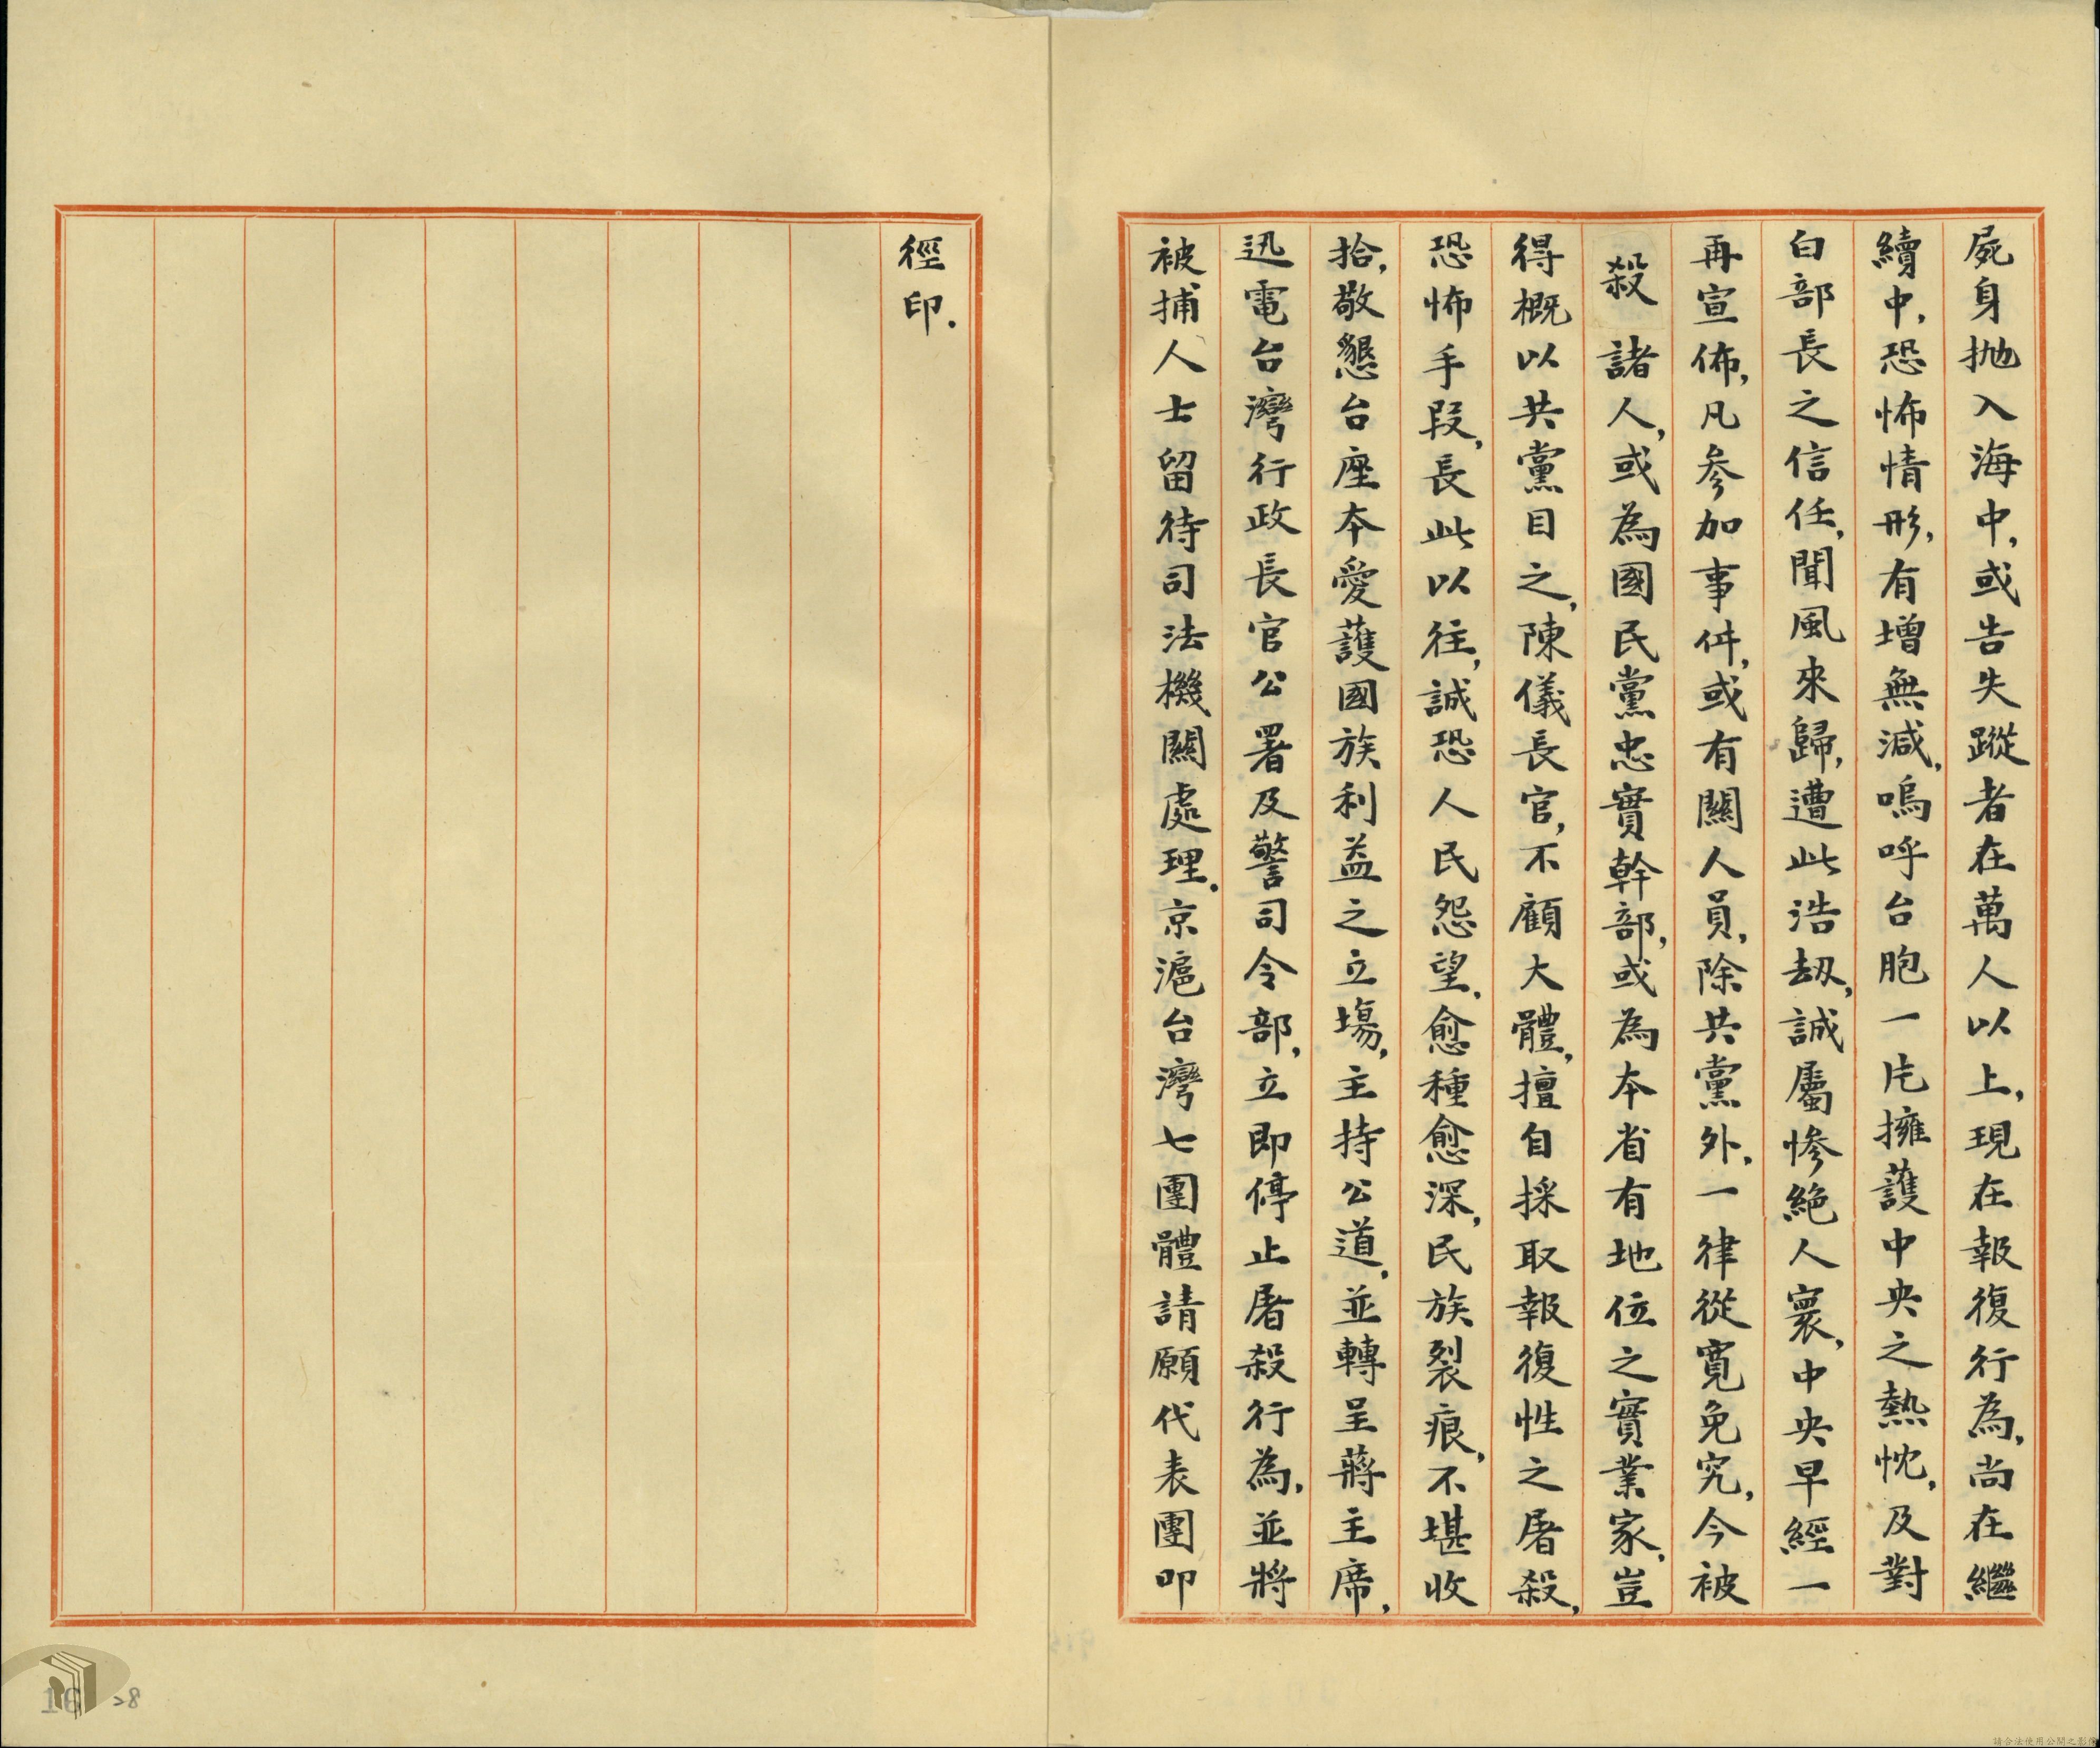 屍身拋入海中，或告失蹤者在萬人以上，現在報復行為，尚在繼
續中，恐怖情形，有增無減，嗚呼台胞一片擁護中央之熱忱，及對
白部長之信任，聞風來歸，遭此浩劫，誠屬慘絕人寰，中央早經一
再宣佈，凡參加事件，或有關人員，除共黨外，一律從寬免究，今被
殺諸人，或為國民黨忠實幹部，或為本省有地位之實業家，豈
得概以共黨目之，陳儀長官，不顧大體，擅自採取報復性之屠殺，
恐怖手段，長此以往，誠恐人民怨望，愈種愈深，民族裂痕，不堪收
拾，敬懇台座本愛護國族利益之立場，主持公道，並轉呈蔣主席，
迅電台灣行政長官公署及警司令部，立即停止屠殺行為，並將
被捕人士留待司法機關處理．京滬台灣七團體請願代表團叩
徑印．
16 28
請合法使用公開之影像